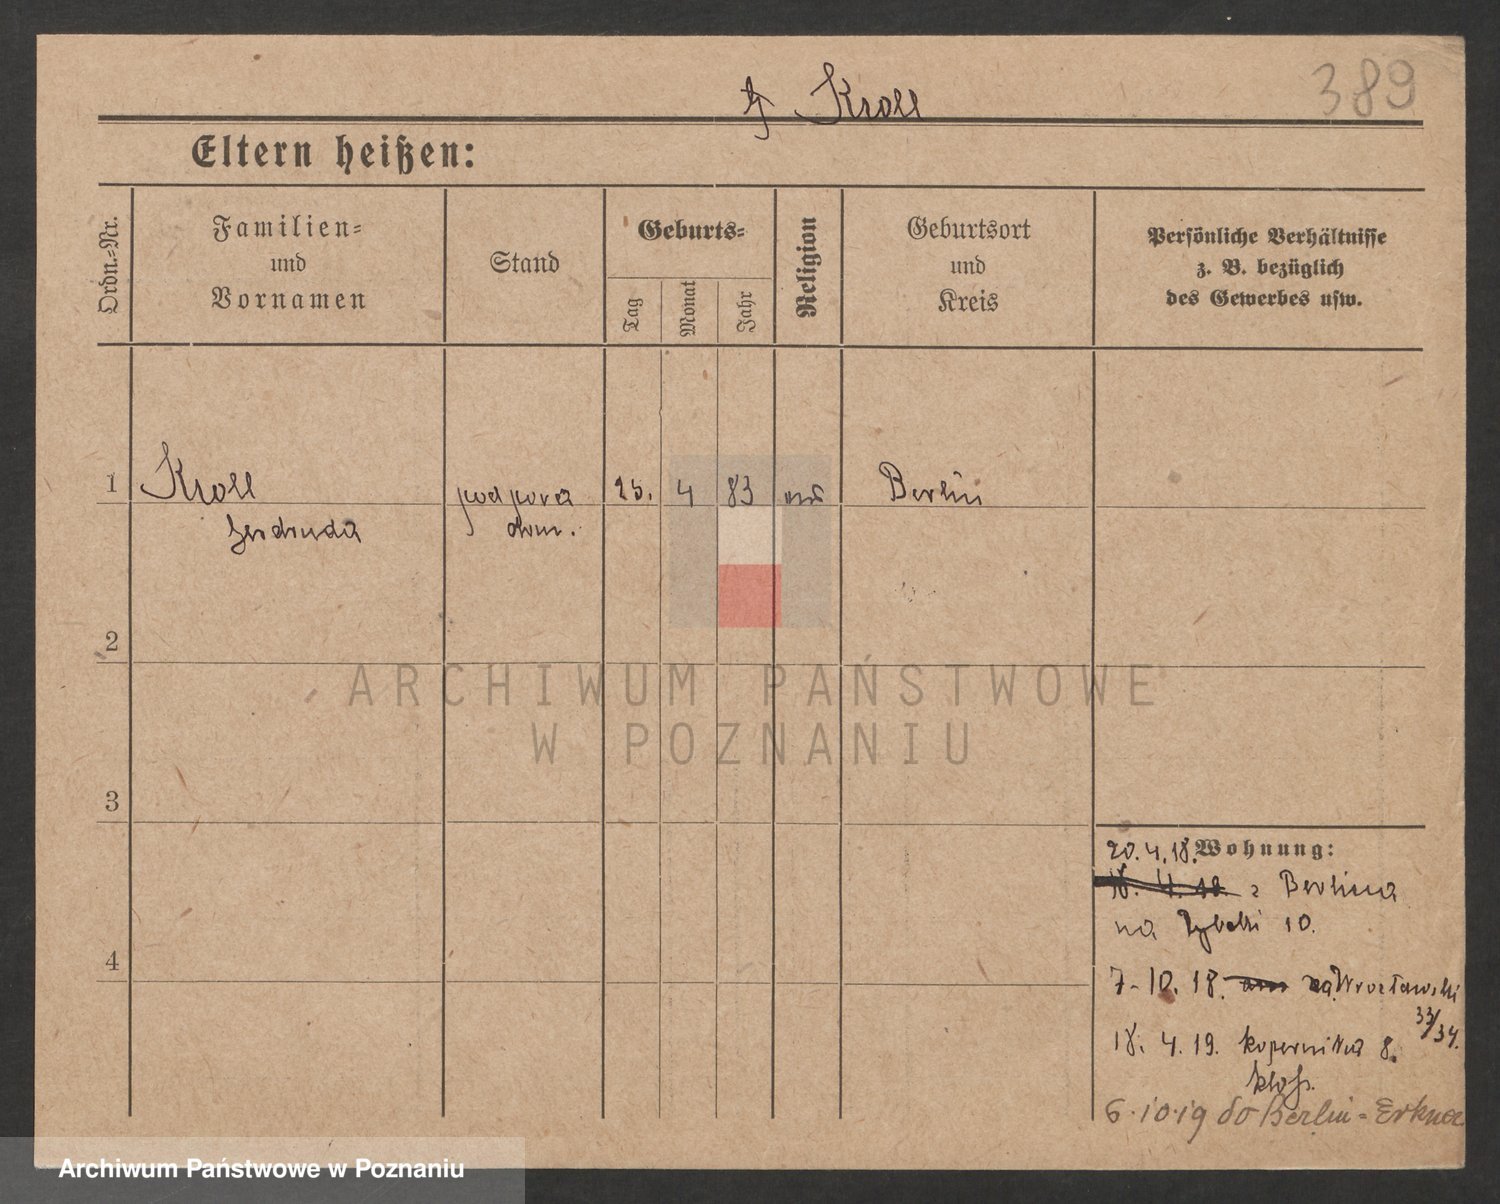 Kroll
389
Eltern heißen:
Ordn.-Nr.
Familien-
und
Vornamen
Stand
Geburts-
Tag
Monat
Jahr
Religion
Geburtsort
und
Kreis
Persönliche Verhältnisse
z. B. bezüglich
des Gewerbes usw.
1 Kroll podpora 25. 4 83 Berlin
Gertruda dom.
2
ARCHIWUM PAŃSTWOWE
W POZNANIU
3
20.4.18. Wohnung:
18. 4. 18 z Berlina
na Rybaki 10.
4
7-10. 18. Wrocławski
33/34.
18. 4. 19. Kopernika 8.
6.10.19 do Berlin-Erkner
Archiwum Państwowe w Poznaniu